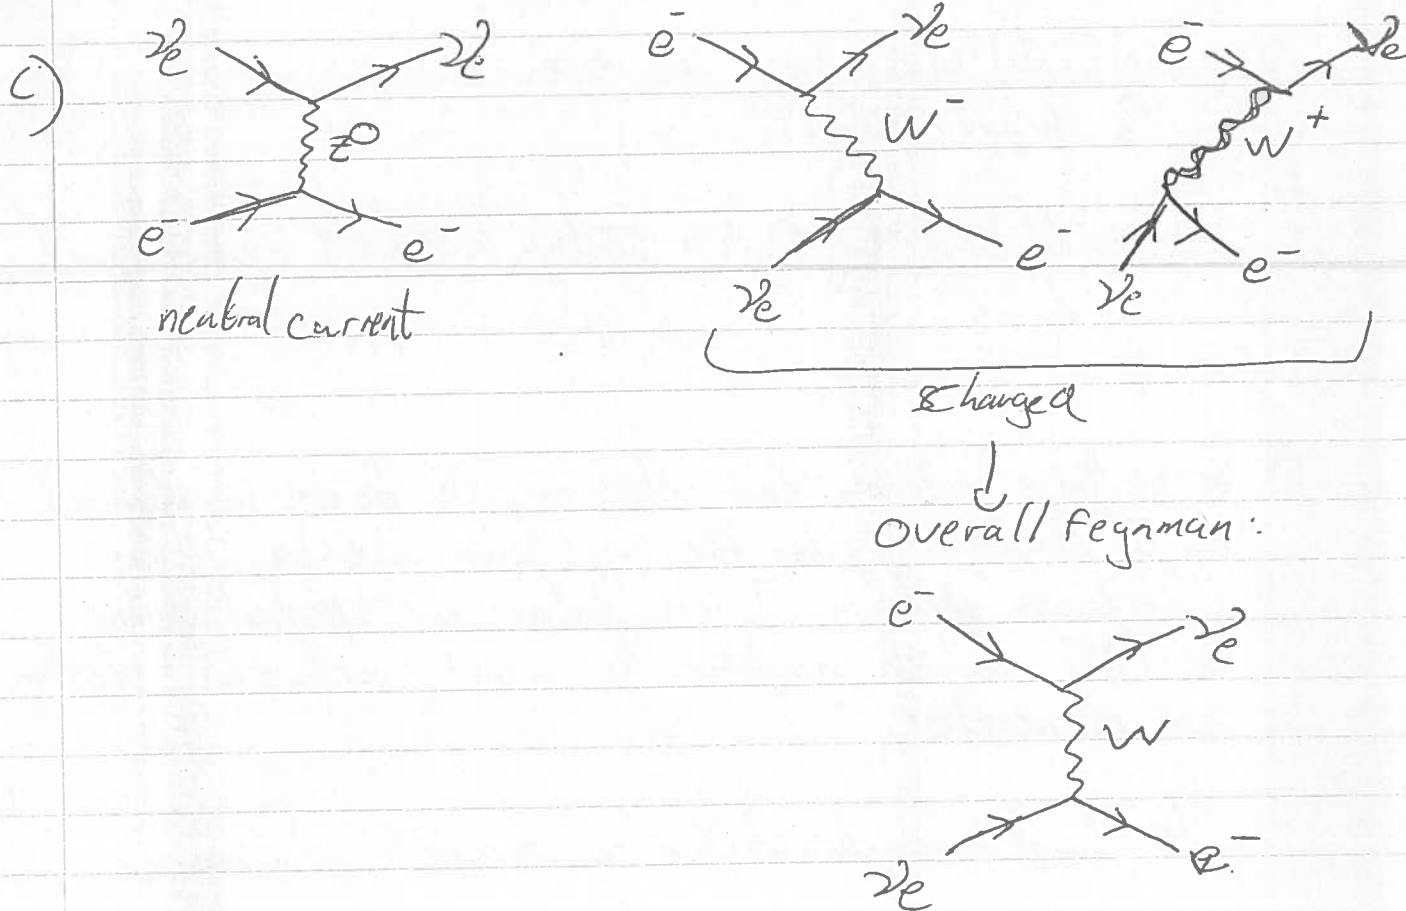 c)
νe νe
Z⁰
e⁻ e⁻
neutral current
e⁻ νe
W⁻
νe e⁻
e⁻ νe
W⁺
νe e⁻
Charged
Overall Feynman:
e⁻ νe
W
νe e⁻